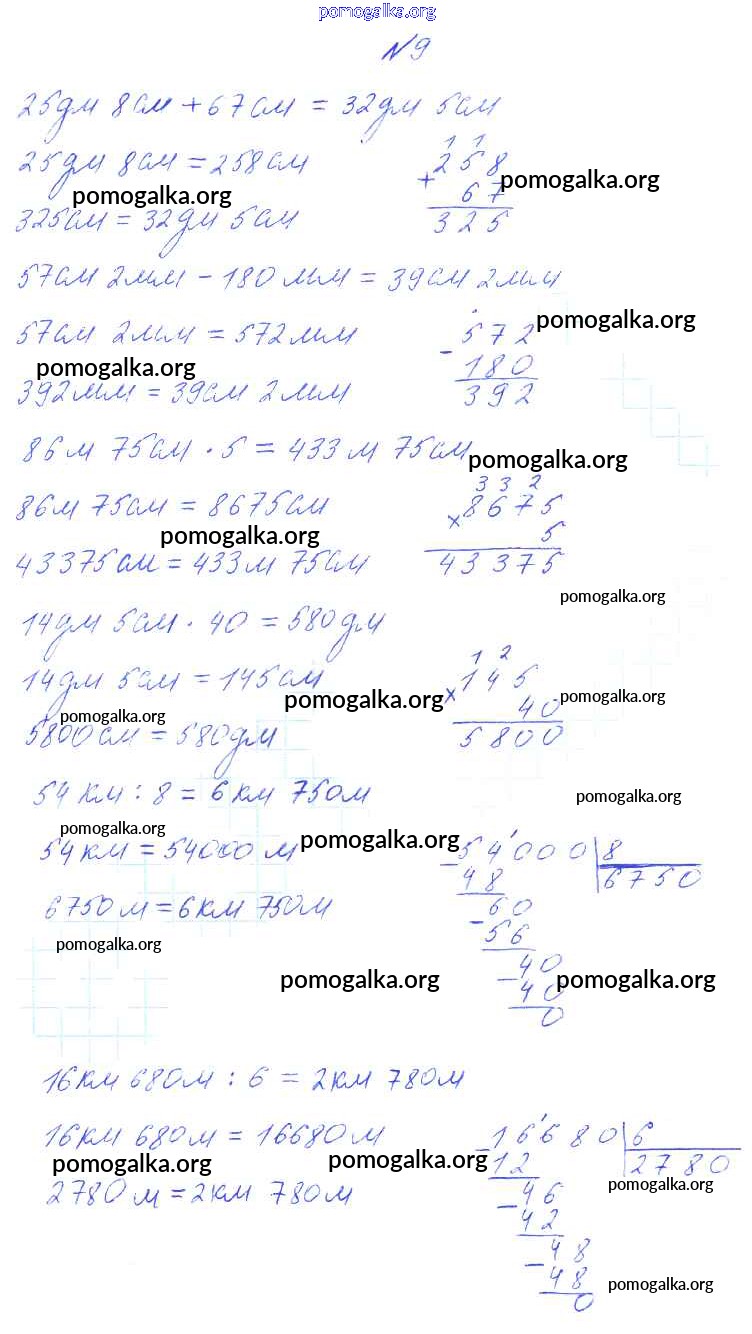 pomogalka.org
№9
25дм 8см + 67см = 32дм 5см
25дм 8см = 258см
1 1
258
+ 67
325
pomogalka.org
pomogalka.org
325см = 32дм 5см
57см 2мм - 180мм = 39см 2мм
57см 2мм = 572мм
572
- 180
392
pomogalka.org
pomogalka.org
392мм = 39см 2мм
86м 75см · 5 = 433м 75см
pomogalka.org
86м 75см = 8675см
3 3 2
8675
× 5
43375
pomogalka.org
43375см = 433м 75см
pomogalka.org
14дм 5см · 40 = 580дм
14дм 5см = 145см
1 2
145
× 40
5800
pomogalka.org
pomogalka.org
pomogalka.org
5800см = 580дм
54км : 8 = 6км 750м
pomogalka.org
pomogalka.org
54км = 54000м
pomogalka.org
- 54000 8
48 6750
60
- 56
40
- 40
0
6750м = 6км 750м
pomogalka.org
pomogalka.org
pomogalka.org
16км 680м : 6 = 2км 780м
16км 680м = 16680м
- 16680 6
12 2780
- 46
42
48
- 48
0
pomogalka.org
pomogalka.org
pomogalka.org
2780м = 2км 780м
pomogalka.org